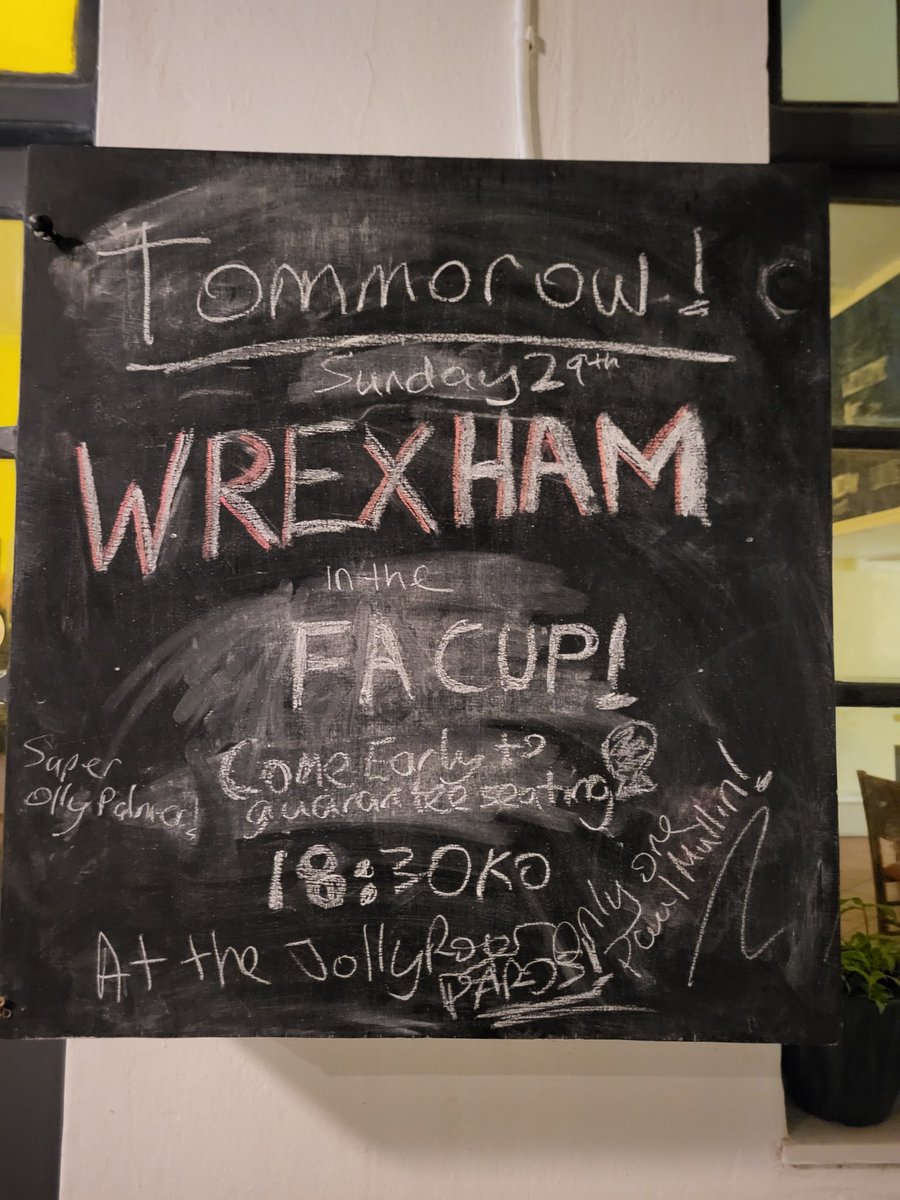 Tommorow!
Sunday 29th
WREXHAM
in the
FA CUP!
Come Early to
guarantee seating
Super
Olly Palmer!
18:30KO
At the Jolly
only one
Paul Mullin!